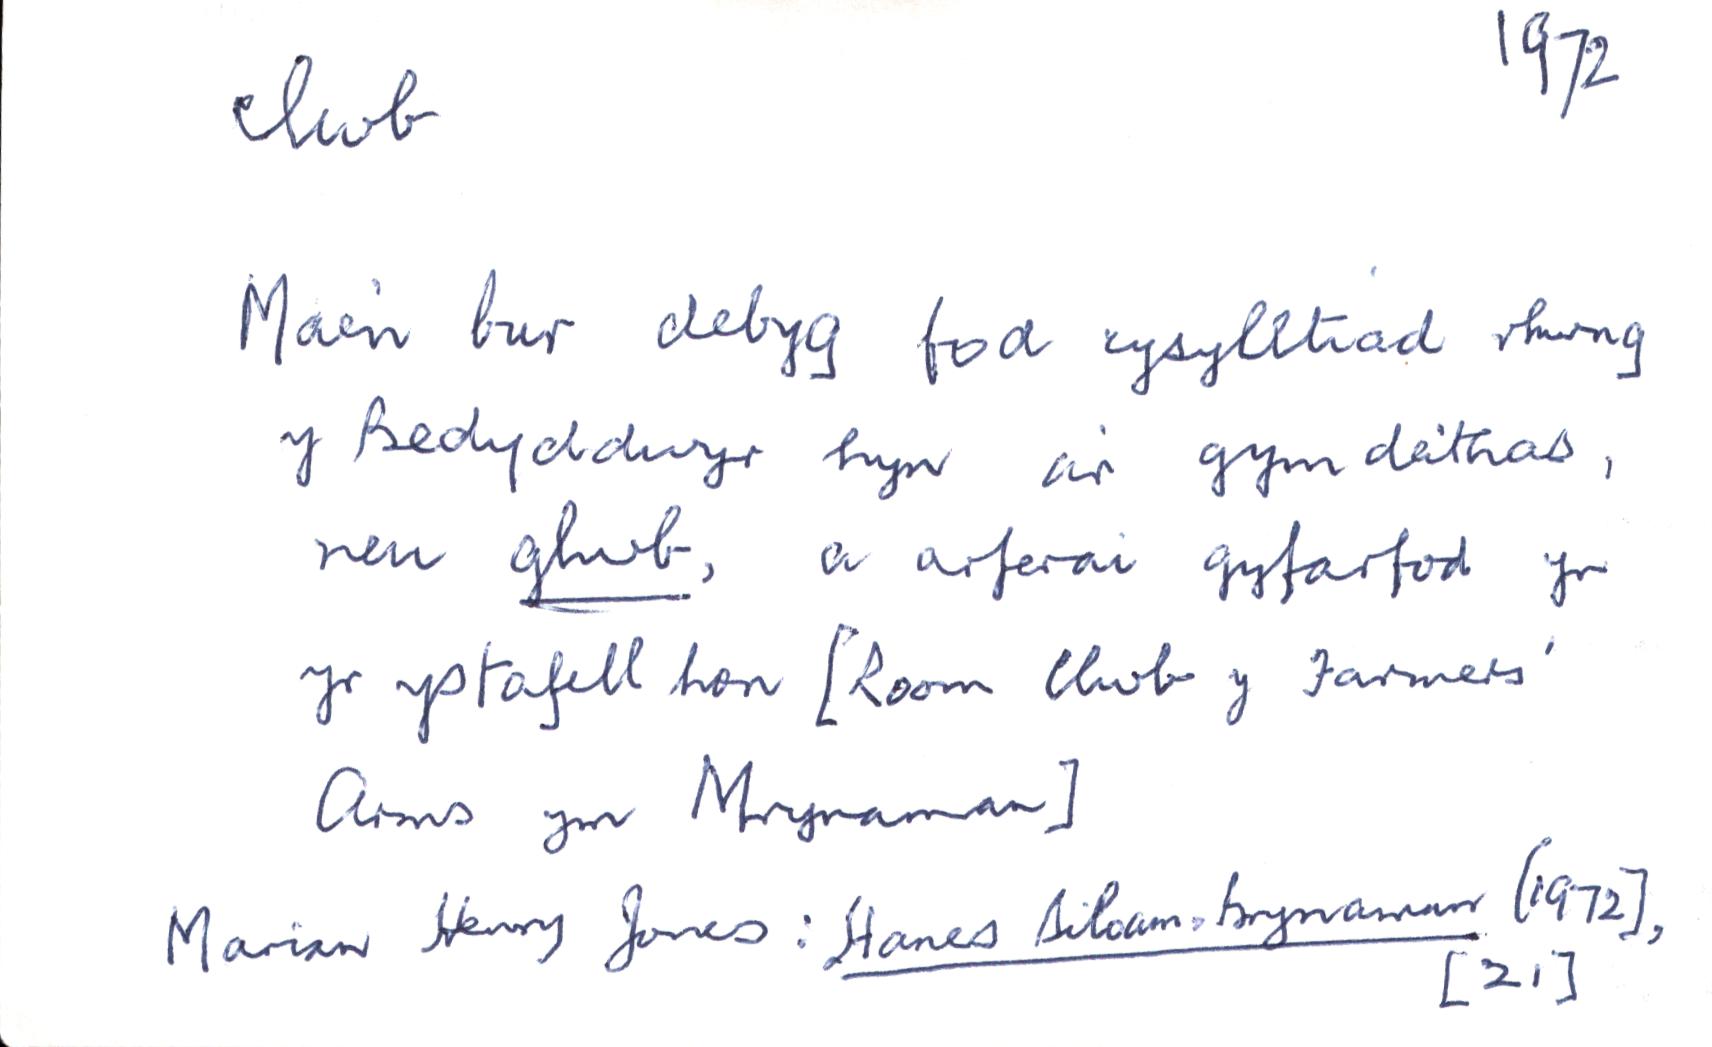 clwb
1972
Mae'n bur debyg fod cysylltiad rhwng
y Bedyddwyr hyn a'r gymdeithas,
neu glwb, a arferai gyfarfod yn
yr ystafell hon [Room Clwb y Farmers'
Arms ym Mrynaman]
Marian Henry Jones : Hanes Siloam, Brynaman [1972],
[21]